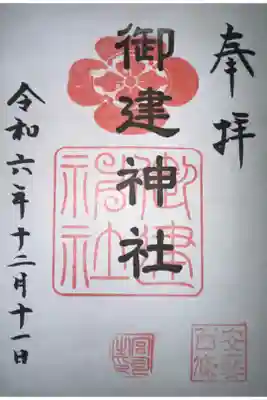 奉拝
御建神社
御建神社
令和六年十二月十一日